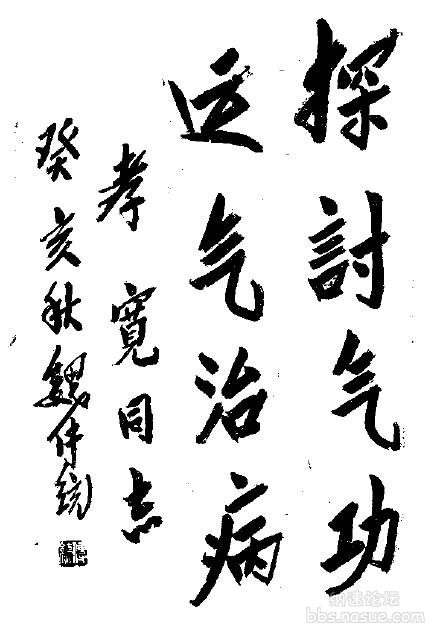 探討气功
运气治病
孝寬同志
癸亥秋魏传统
纳速论坛
bbs.nasue.com